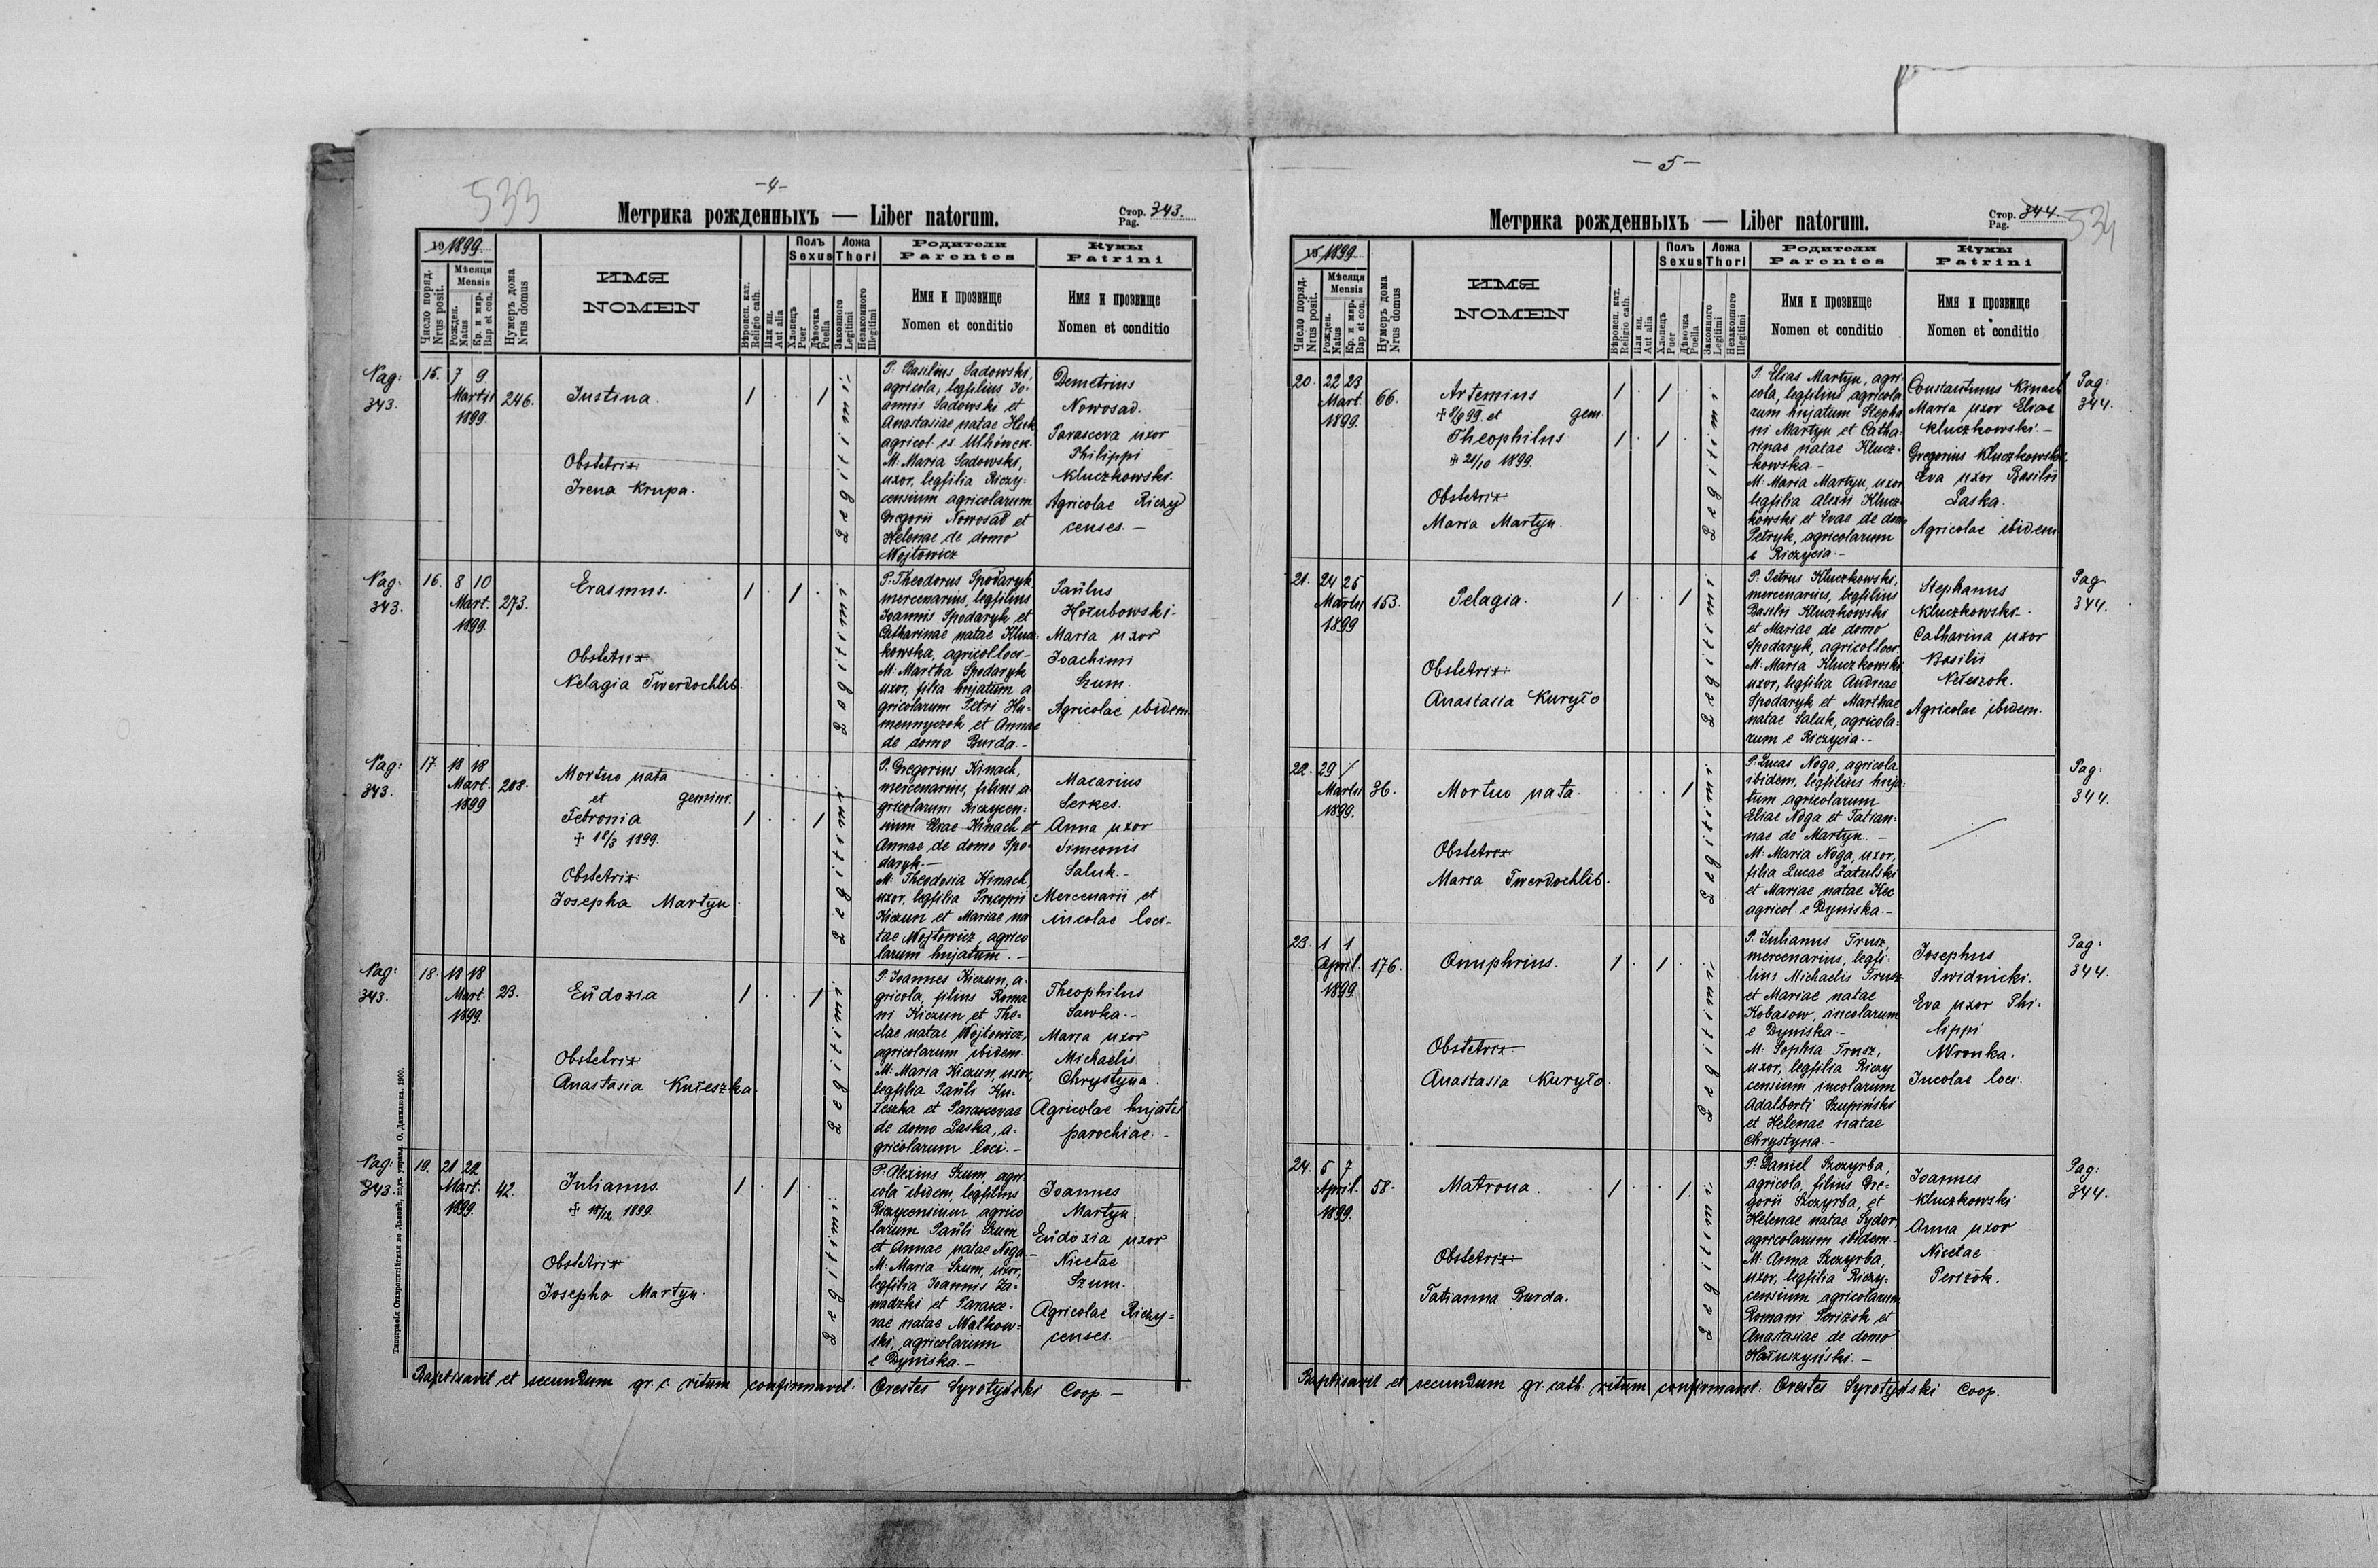 533
-4-
Метрика рожденныхъ — Liber natorum.
Стор. Pag. 343.
19 1899.
Число поряд. Nrus posit.
Мѣсяця Mensis
Рожден. Natus
Кр. и мир. Bap et con.
Нумеръ дома Nrus domus
ИМЯ
NOMEN
Вѣроисп. кат. Religio cath.
Или ин. Aut alia
Полъ Sexus
Хлопець Puer
Дѣвочка Puella
Ложа Thori
Законного Legitimi
Незаконного Illegitimi
Родители
Parentes
Имя и прозвище
Nomen et conditio
Кумы
Patrini
Имя и прозвище
Nomen et conditio
Pag: 343.
15. 7 9 Martii 1899 246.
Justina.
Obstetrix
Irena Krupa.
Legitimi
P. Basilius Sadowski,
agricola, legfilius Jo-
annis Sadowski et
Anastasiae natae Huk
agricol. ex Uhnów.
M: Maria Sadowski,
uxor, legfilia Riczy-
censium agricolarum
Gregorii Nowosad et
Helenae de domo
Wojtowicz
Demetrius
Nowosad.
Parasceva uxor
Philippi
Kluczkowski.
Agricolae Riczy
censes. -
Pag: 343.
16. 8 10 Mart. 1899. 273.
Erasmus.
Obstetrix
Pelagia Twerdochlib.
Legitimi
P. Theodorus Spodaryk
mercenarius, legfilius
Joannis Spodaryk et
Catharinae natae Klucz-
kowska, agricol loci-
M: Martha Spodaryk
uxor, filia hujatum a
gricolarum Petri Hu-
mennyczok et Annae
de domo Burda. -
Paulus
Hołubowski-
Maria uxor
Joachimi
Szum.
Agricolae ibidem
Pag: 343.
17. 18 18 Mart. 1899 208.
Mortuo nata
et gemini.
Febronia
+ 18/3 1899.
Obstetrix
Josepha Martyn
Legitimi
P. Gregorius Kinach,
mercenarius, filius a
gricolarum Riczycen-
sium Eliae Kinach et
Annae de domo Spo-
daryk. -
M: Theodosia Kinach
uxor, legfilia Procopii
Kiczun et Mariae na
tae Wojtowicz, agrico
larum hujatum. -
Macarius
Serkes.
Anna uxor
Simeonis
Saluk. -
Mercenarii et
incolae loci-
Pag: 343.
18. 18 18 Mart. 1899. 23.
Eudoxia
Obstetrix
Anastasia Kułeszka.
Legitimi
P. Joannes Kiczun, a-
gricola, filius Roma
ni Kiczun et The-
clae natae Wojtowicz,
agricolarum ibidem.
M: Maria Kiczun, uxor,
legfilia Pauli Ku-
łeszka et Parascevae
de domo Laska, a-
gricolarum loci. -
Theophilus
Sawka. -
Maria uxor
Michaelis
Chrystyna.
Agricolae hujatis
parochiae. -
Pag: 343.
19. 21 22 Mart. 1899. 42.
Julianus.
+ 18/12 1899.
Obstetrix
Josepha Martyn.
Legitimi
P. Alexius Szum, agri
cola ibidem, legfilius
Riczycensium agrico
larum Pauli Szum
et Annae natae Noga. -
M: Maria Szum, uxor,
legfilia Joannis Za-
nadzki et Parasce-
vae natae Walkow-
ski, agricolarum
e Dyniska. -
Joannes
Martyn
Eudoxia uxor
Nicetae
Szum.
Agricolae Riczy-
censes.
Baptisavit et secundum gr. c. ritum confirmavit: Orestes Syrotyński Coop. -
Типографія Ставропигійская во Львовѣ, подъ управл. О. Данилюка. 1900.
-5-
Метрика рожденныхъ — Liber natorum.
Стор. Pag. 344.
534
19 1899.
Число поряд. Nrus posit.
Мѣсяця Mensis
Рожден. Natus
Кр. и мир. Bap et con.
Нумеръ дома Nrus domus
ИМЯ
NOMEN
Вѣроисп. кат. Religio cath.
Или ин. Aut alia
Полъ Sexus
Хлопець Puer
Дѣвочка Puella
Ложа Thori
Законного Legitimi
Незаконного Illegitimi
Родители
Parentes
Имя и прозвище
Nomen et conditio
Кумы
Patrini
Имя и прозвище
Nomen et conditio
20. 22 23 Mart. 1899. 66.
Artemius
+ 8/9 99. et gem.
Theophilus
+ 21/10 1899.
Obstetrix
Maria Martyn.
Legitimi
P. Elias Martyn, agri-
cola, legfilius agricola
rum hujatum Stepha
ni Martyn et Catha-
rinae natae Klucz-
kowska. -
M: Maria Martyn, uxor
legfilia Alexii Klucz-
kowski et Evae de domo
Petryk, agricolarum
e Riczycia. -
Constantinus Kinach
Maria uxor Eliae
Kluczkowski. -
Gregorius Kluczkowski.
Eva uxor Basilii
Laska.
Agricolae ibidem
Pag: 344.
21. 24 25 Martii 1899 153.
Pelagia.
Obstetrix
Anastasia Kuryło
Legitimi
P. Petrus Kluczkowski,
mercenarius, legfilius
Basilii Kluczkowski
et Mariae de domo
Spodaryk, agricol loci-
M: Maria Kluczkowski
uxor, legfilia Andreae
Spodaryk et Marthae
natae Saluk, agricola-
rum e Riczycia. -
Stephanus
Kluczkowski-
Catharina uxor
Basilii
Agricolae ibidem.
Pag 344.
22. 29 / Martii 1899. 36.
Mortuo nata.
Obstetrix
Maria Twerdochlib.
Legitimi
P. Lucas Noga, agricola
ibidem, legfilius huja-
tum agricolarum
Eliae Noga et Tatian-
nae de Martyn. -
M: Maria Noga, uxor,
filia Lucae Zatulski
et Mariae natae Kec
agricol. e Dyniska. -
Pag: 344.
23. 1 1 April. 1899 176.
Onuphrius.
Obstetrix
Anastasia Kuryło.
Legitimi
P. Julianus Trusz,
mercenarius, legfi-
lius Michaelis Trusz
et Mariae natae
Kobasow, incolarum
e Dyniska. -
M: Sophia Trusz,
uxor, legfilia Riczy
censium incolarum
Adalberti Szupiński
et Helenae natae
Chrystyna. -
Josephus
Swidnicki.
Eva uxor Phi-
lippi
Wronka.
Incolae loci.
Pag: 344.
24. 5 7 April. 1899. 58.
Matrona.
Obstetrix
Tatianna Burda.
Legitimi
P. Daniel Szczyrba,
agricola, filius Gre-
gorii Szczyrba, et
Helenae natae Sydor,
agricolarum ibidem. -
M: Anna Szczyrba,
uxor, legfilia Riczy-
censium agricolarum
Romani Perizok et
Anastasiae de domo
Hałuszyński. -
Joannes
Kluczkowski
Anna uxor
Nicetae
Perizok.
Pag: 344.
Baptisavit et secundum gr. cath. ritum confirmavit: Orestes Syrotyński Coop.